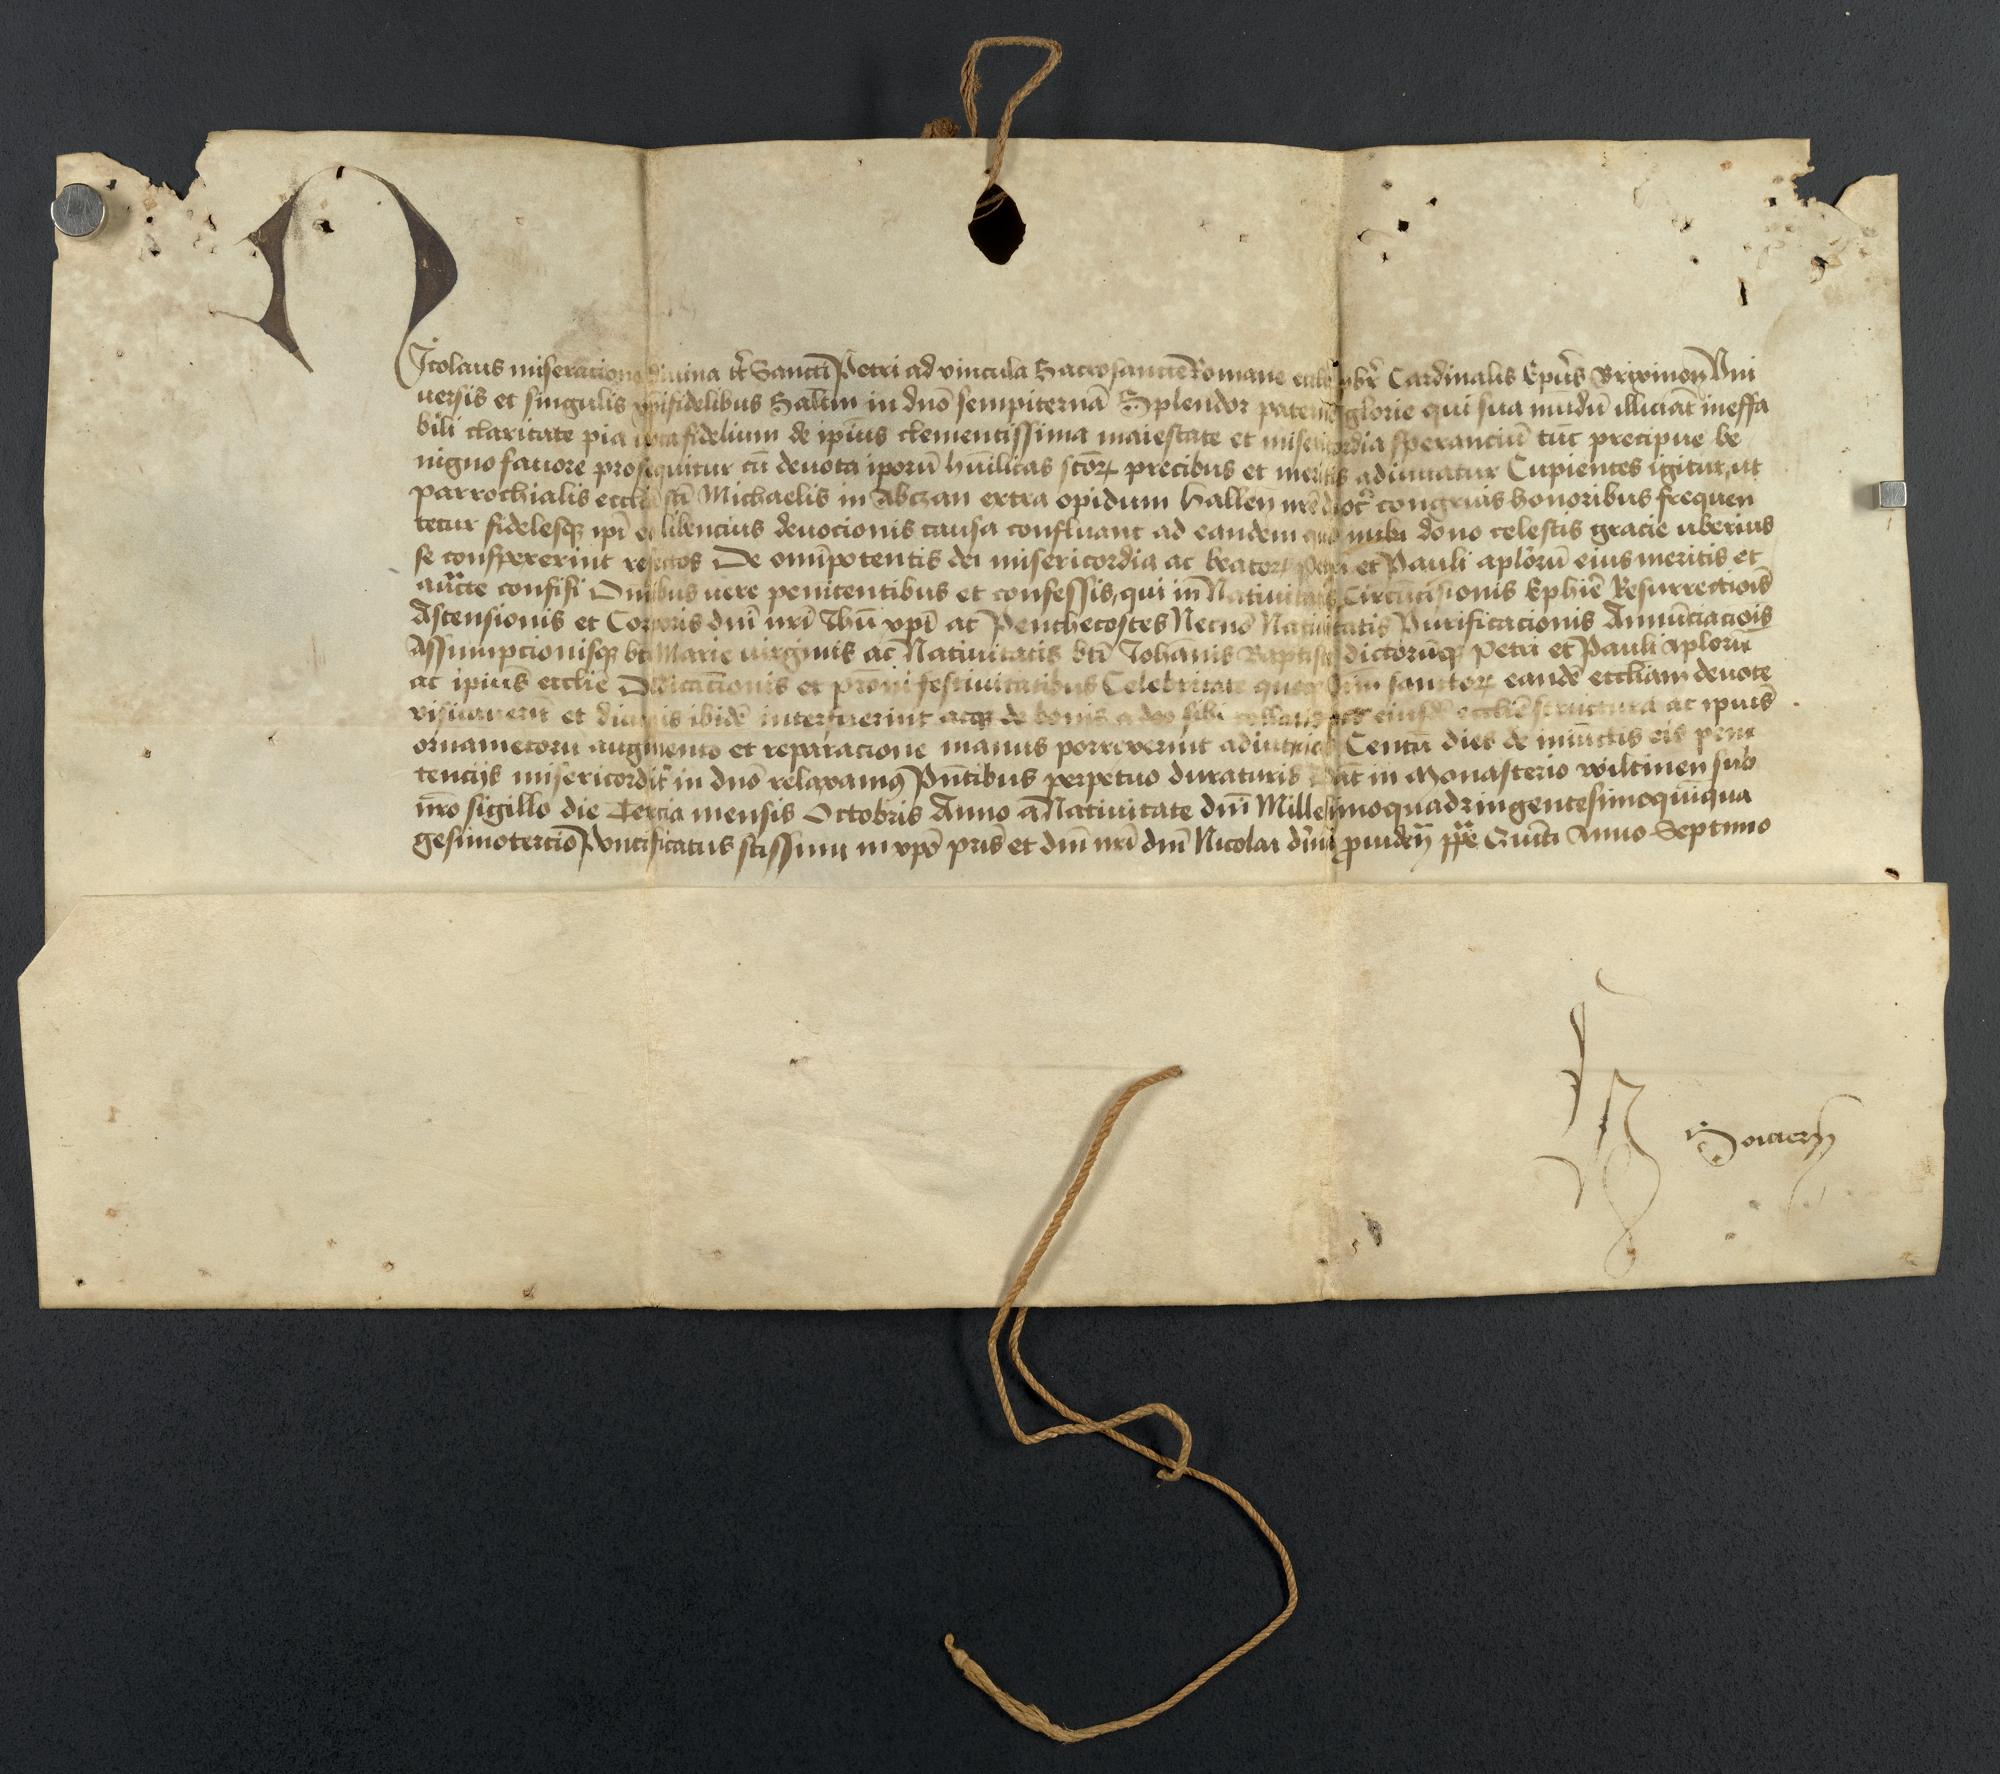 Nicolaus miseracione diuina tt̄ Sancti Petri ad vincula Sacrosancte Romane eccl̄ie p̄br̄ Cardinalis Ep̄us Brixinen̄ Vni
uersis et singulis xp̄ifidelibus Salt̄m in dn̄o sempiternā Splendor paterne glorie qui sua mūdū illuciāt ineffa
bili claritate pia vota fidelium de ip̄ius clementissima maiestate et misericordia speranciū tūc precipue be
nigno fauore prosequitur cū deuota ip̄orū hūilitas sc̄orꝝ precibus et meritis adiuuatur Cupientes igitur, ut
parrochialis eccl̄ia sc̄i Michaelis in Abczan extra opidum Hallen̄ nr̄e dioc̄ congruis honoribus frequen
tetur fidelesqꝫ ip̄i eo libencius deuocionis causa confluant ad eandem quo inibi dono celestis gracie uberius
se conspexerint refectos De omīpotentis dei misericordia ac beatorꝝ Petri et Pauli apl̄orū eius meritis et
auc̄te confisi Omībus uere penitentibus et confessis, qui in Natiuitatis Circūcisionis Ephie̅ Resurrectiōis
Ascensionis et Corporis dn̄i nr̄i Ihū xp̄i ac Penthecostes Necnō Natiuitatis Purificacionis Annūciaciōis
Assumpcionisqꝫ bt̄e Marie uirginis ac Natiuitatis bt̄i Joh̄annis Baptiste dictorūqꝫ Petri et Pauli apl̄orū
ac ip̄ius eccl̄ie Dedicacionis et pr̄oni festiuitatibus Celebritate quoqꝫ Om̄ sanctorꝝ eandē eccl̄iam deuote
visitauerīt et diuinis ibidē interfuerint acqꝫ de bonis a deo sibi collatis pro eiusdē eccl̄ie structura ac ip̄ius
ornamētorū augmento et reparacione manus porrexerint adiutrices Centū dies de iniūctis eis peni
tencijs misericordit̄ in dn̄o relaxamꝯ Pn̄tibus perpetuo duraturis Dat̄ in Monasterio wiltinen̄ sub
nr̄o sigillo die Tercia mensis Octobris Anno a Natiuitate dn̄i Millesimoquadringentesimoquīqua
gesimotercio Pontificatus sc̄issimi in xp̄o pr̄is et dn̄i nr̄i dn̄i Nicolai diuīa prouiden̄ pp̄e Quīti Anno Septimo